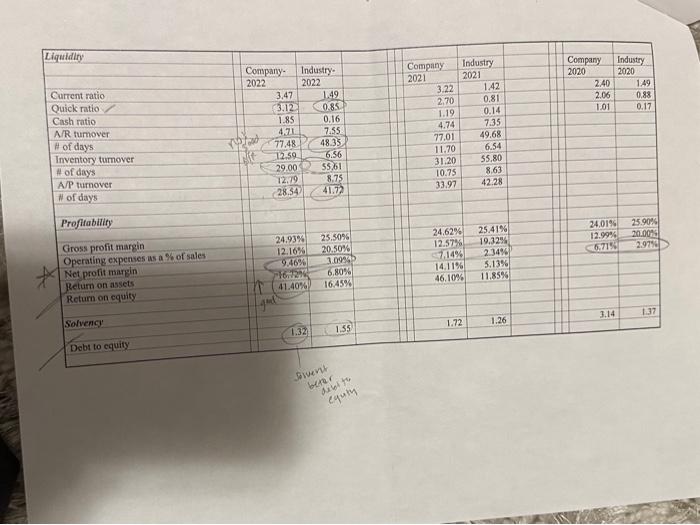 Liquidity
Company- 2022 Industry- 2022 Company 2021 Industry 2021 Company 2020 Industry 2020
Current ratio 3.47 1.49 3.22 1.42 2.40 1.49
Quick ratio 3.12 0.85 2.70 0.81 2.06 0.88
Cash ratio 1.85 0.16 1.19 0.14 1.01 0.17
A/R turnover 4.71 7.55 4.74 7.35
# of days 77.48 48.35 77.01 49.68
Inventory turnover 12.59 6.56 11.70 6.54
# of days 29.00 55.61 31.20 55.80
A/P turnover 12.79 8.75 10.75 8.63
# of days 28.54 41.72 33.97 42.28
Profitability
Gross profit margin 24.93% 25.50% 24.62% 25.41% 24.01% 25.90%
Operating expenses as a % of sales 12.16% 20.50% 12.57% 19.32% 12.99% 20.00%
Net profit margin 9.46% 3.09% 7.14% 2.34% 6.71% 2.97%
Return on assets 16.72% 6.80% 14.11% 5.13%
Return on equity 41.40% 16.45% 46.10% 11.85%
good
Solvency
Debt to equity 1.32 1.55 1.72 1.26 3.14 1.37
solvent
better
debt to
equity